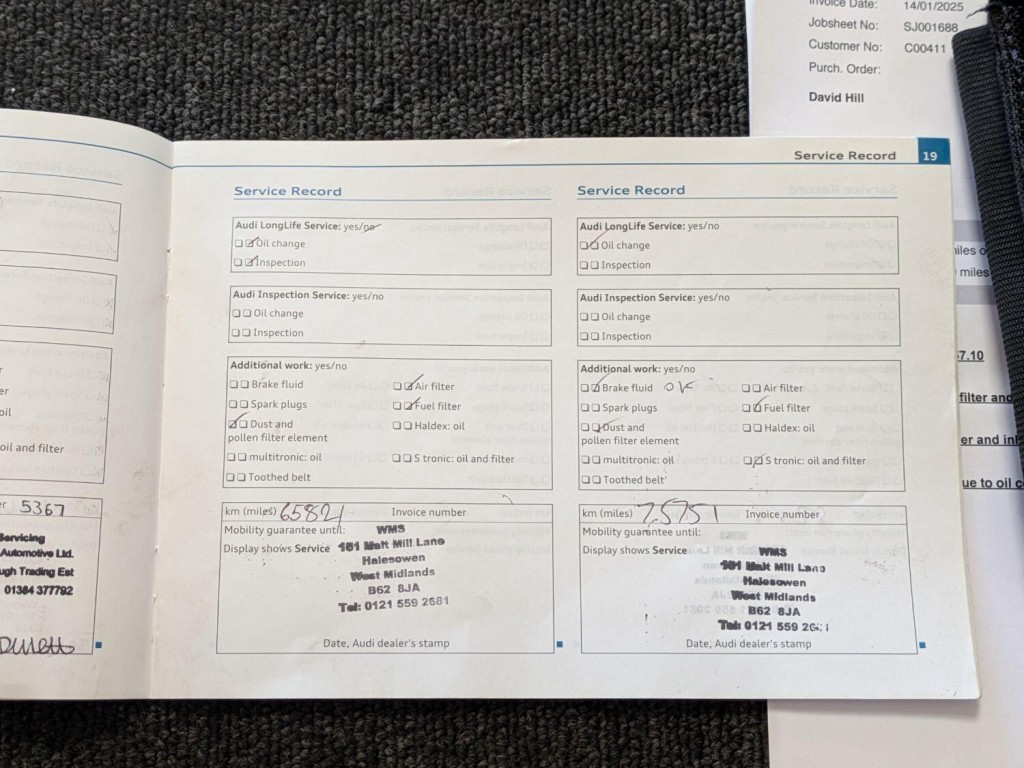 Invoice Date: 14/01/2025
Jobsheet No: SJ001688
Customer No: C00411
Purch. Order:
David Hill
Service Record 19
Service Record
Audi LongLife Service: yes/no
Oil change
Inspection
Audi Inspection Service: yes/no
Oil change
Inspection
Additional work: yes/no
Brake fluid Air filter
Spark plugs Fuel filter
Dust and Haldex: oil
pollen filter element
multitronic: oil S tronic: oil and filter
Toothed belt
km (miles) 65821 Invoice number
Mobility guarantee until:
Display shows Service
WMS
101 Malt Mill Lane
Halesowen
West Midlands
B62 8JA
Tel: 0121 559 2681
Date, Audi dealer's stamp
Service Record
Audi LongLife Service: yes/no
Oil change
Inspection
Audi Inspection Service: yes/no
Oil change
Inspection
Additional work: yes/no
Brake fluid OK Air filter
Spark plugs Fuel filter
Dust and Haldex: oil
pollen filter element
multitronic: oil S tronic: oil and filter
Toothed belt
km (miles) 75751 Invoice number
Mobility guarantee until:
Display shows Service
WMS
Malt Mill Lane
Halesowen
West Midlands
B62 8JA
Tel: 0121 559
Date, Audi dealer's stamp
oil
oil and filter
5367
Servicing
Automotive Ltd.
ugh Trading Est
01384 377792
miles
7.10
filter and
er and in
ue to oil c